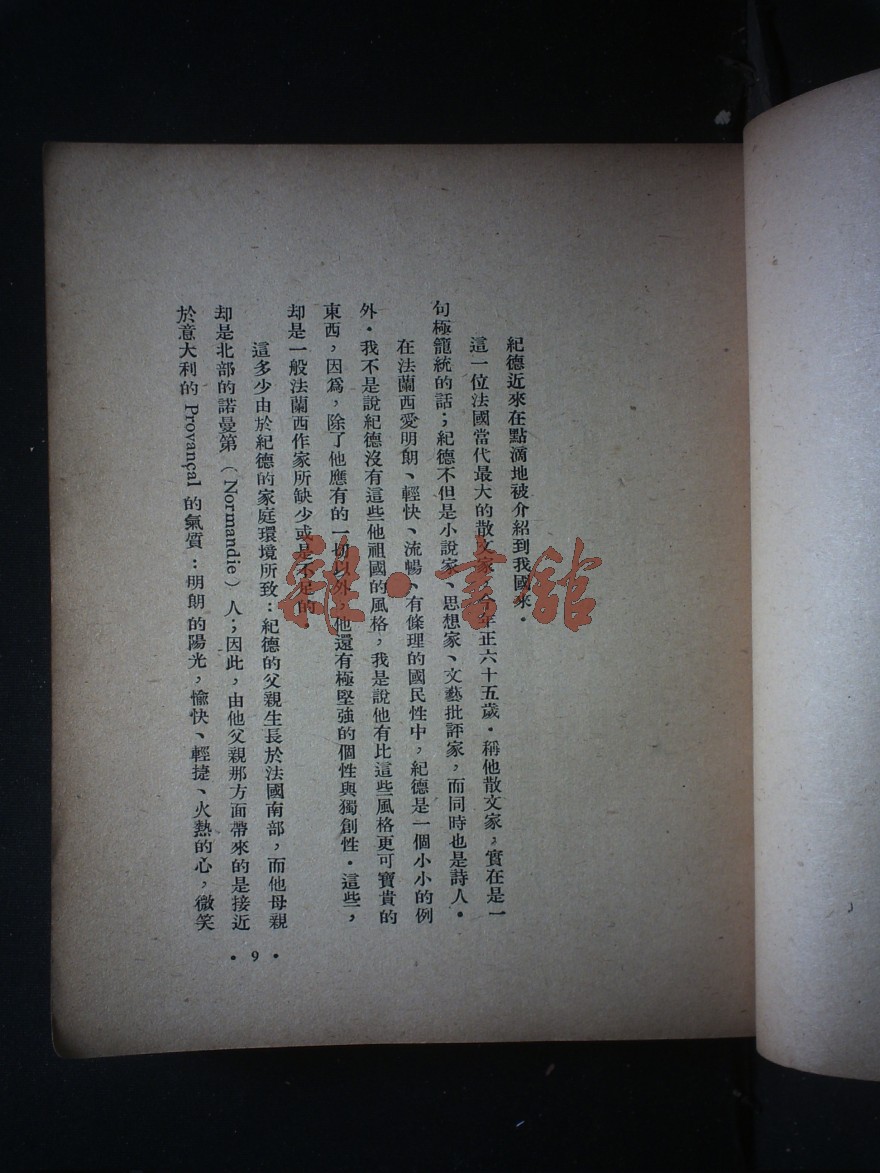 紀德近來在點滴地被介紹到我國來．
這一位法國當代最大的散文家，今年正六十五歲．稱他散文家，實在是一
句極籠統的話；紀德不但是小說家、思想家、文藝批評家，而同時也是詩人．
在法蘭西愛明朗、輕快、流暢、有條理的國民性中，紀德是一個小小的例
外．我不是說紀德沒有這些他祖國的風格，我是說他有比這些風格更可寶貴的
東西，因爲，除了他應有的一切以外，他還有極堅強的個性與獨創性．這些，
却是一般法蘭西作家所缺少或是不足的．
這多少由於紀德的家庭環境所致：紀德的父親生長於法國南部，而他母親
却是北部的諾曼第（Normandie）人；因此，由他父親那方面帶來的是接近
於意大利的 Provançal 的氣質：明朗的陽光，愉快、輕捷、火熱的心，微笑
．9．
雜·書舘